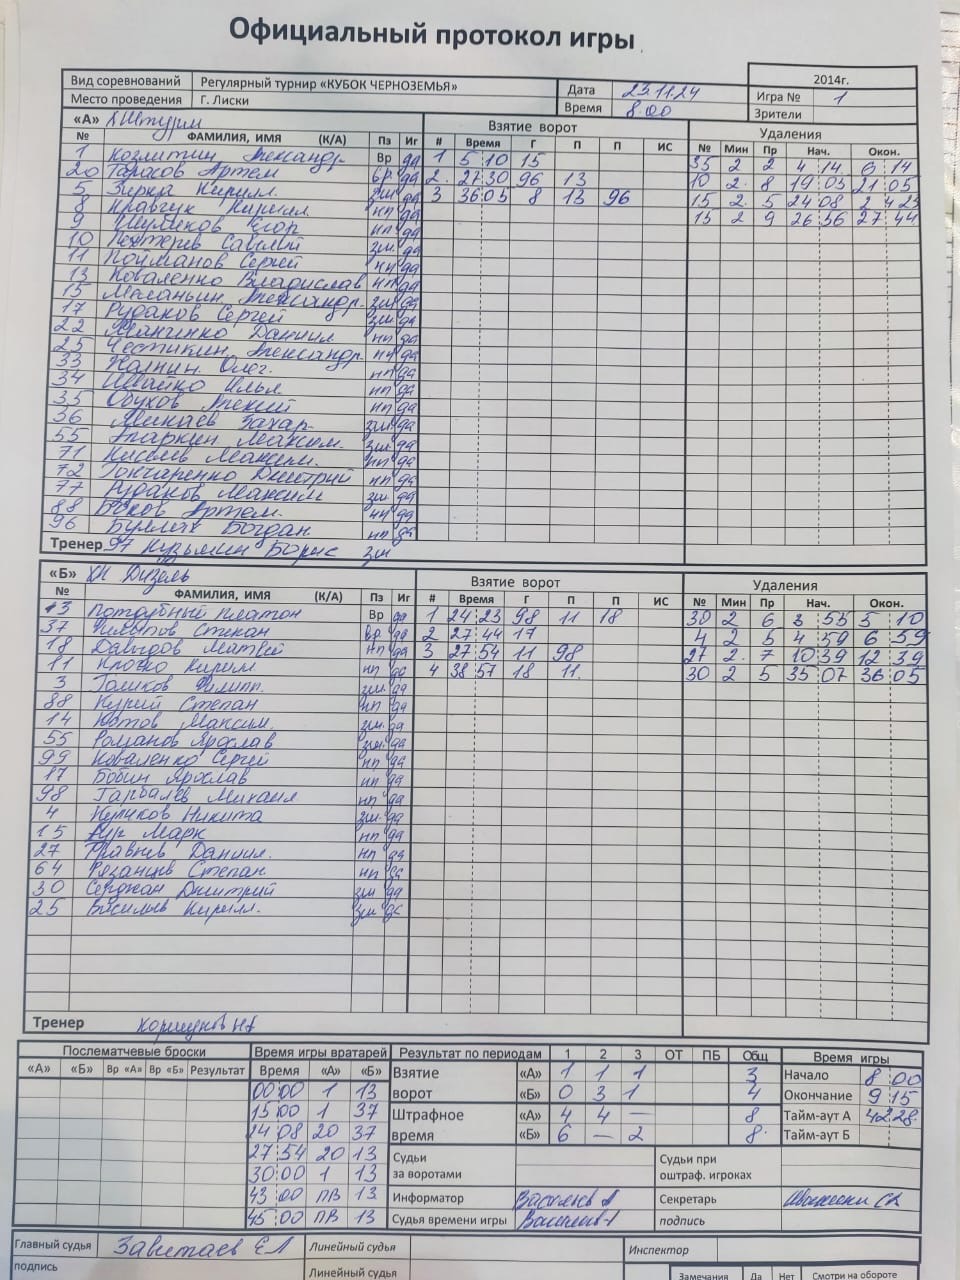 Официальный протокол игры
Вид соревнований Регулярный турнир «КУБОК ЧЕРНОЗЕМЬЯ» Дата 23.11.24 2014г.
Место проведения Г. Лиски Время 8.00 Игра № 1
Зрители
«А» Взятие ворот Удаления
№ ФАМИЛИЯ, ИМЯ (К/А) Пз Иг # Время Г П П ИС № Мин Пр Нач. Окон.
1 Козлитин Александр Вр да 1 5 10 15 35 2 2 4 14 6 14
20 Тарасов Артем вр да 2. 27 30 96 13 10 2. 8 19 05 21 05
5 Зерка Кирилл. зщ да 3 36 05 8 13 96 15 2. 5 24 08 2 4 23
8 Кравчук Кирилл. нп да 15 2 9 26 56 27 44
9 Егор нп да
10 Савелий зщ да
11 Сергей нп да
13 Коваленко Владислав нп да
15 Александр. зщ да
17 Рудаков Сергей зщ да
22 Даниил нп да
25 Александр нп да
33 Олег. нп да
34 Швайко Илья нп да
35 Обухов нп да
36 Захар. зщ да
55 Максим. зщ да
71 Киселев Максим. нп да
72 Гончаренко Дмитрий нп да
77 Рудаков Максим зщ да
88 Боков Артем. нп да
96 Богдан нп да
Тренер 97 Кузьмин Борис зщ
«Б» ХК Дизель Взятие ворот Удаления
№ ФАМИЛИЯ, ИМЯ (К/А) Пз Иг # Время Г П П ИС № Мин Пр Нач. Окон.
13 Поддубный Платон Вр да 1 24 23 98 11 18 30 2 6 3 55 5 10
37 Филиппов Степан вр да 2 27 44 17 4 2 5 4 59 6 59
18 Давыдов Матвей нп да 3 27 54 11 98 27 2. 7 10 39 12 39
11 Кротко Кирилл нп да 4 38 57 18 11. 30 2 5 35 07 36 05
3 Голиков Филипп. зщ да
88 Курий Степан нп да
14 Максим. зщ да
55 Романов Ярослав зщ. да
99 Коваленко Сергей нп да
17 Бобин Ярослав нп да
98 Гарбалев Михаил нп да
4 Куликов Никита зщ. да
15 Кур Марк нп да
27 Травнев Даниил. нп да
64 Рязанцев Степан нп да
30 Сержан Дмитрий зщ да
25 Васильев Кирилл. зщ да
Тренер
Послематчевые броски Время игры вратарей Результат по периодам 1 2 3 ОТ ПБ Общ Время игры
«А» «Б» Вр «А» Вр «Б» Результат Время «А» «Б» Взятие «А» 1 1 1 3 Начало 8 00
00 00 1 13 ворот «Б» 0 3 1 4 Окончание 9 15
15 00 1 37 Штрафное «А» 4 4 — 8 Тайм-аут А 42 28
24 08 20 37 время «Б» 6 — 2 8 Тайм-аут Б
27 54 20 13 Судьи Судьи при
30 00 1 13 за воротами оштраф. игроках
43 00 ПВ 13 Информатор Секретарь
45 00 ПВ 13 Судья времени игры подпись
Главный судья Линейный судья Инспектор
подпись Линейный судья Замечания Да Нет Смотри на обороте